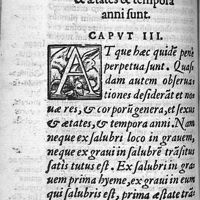 & ætates & tempora
anni sunt.
CAPVT III.
AT que hæc quidē penè
perpetua sunt. Quas
dam autem obserua
tiones desiderāt et no
uæ res, & corporū genera, et sexus
& ætates, & tempora anni. Nam
neque ex salubri loco in grauem,
neque ex graui in salubrē trāsitus
satis tutus est. Ex salubri in gra
uem prima hyeme, ex graui in eum
qui salubris est, prima æstate trā